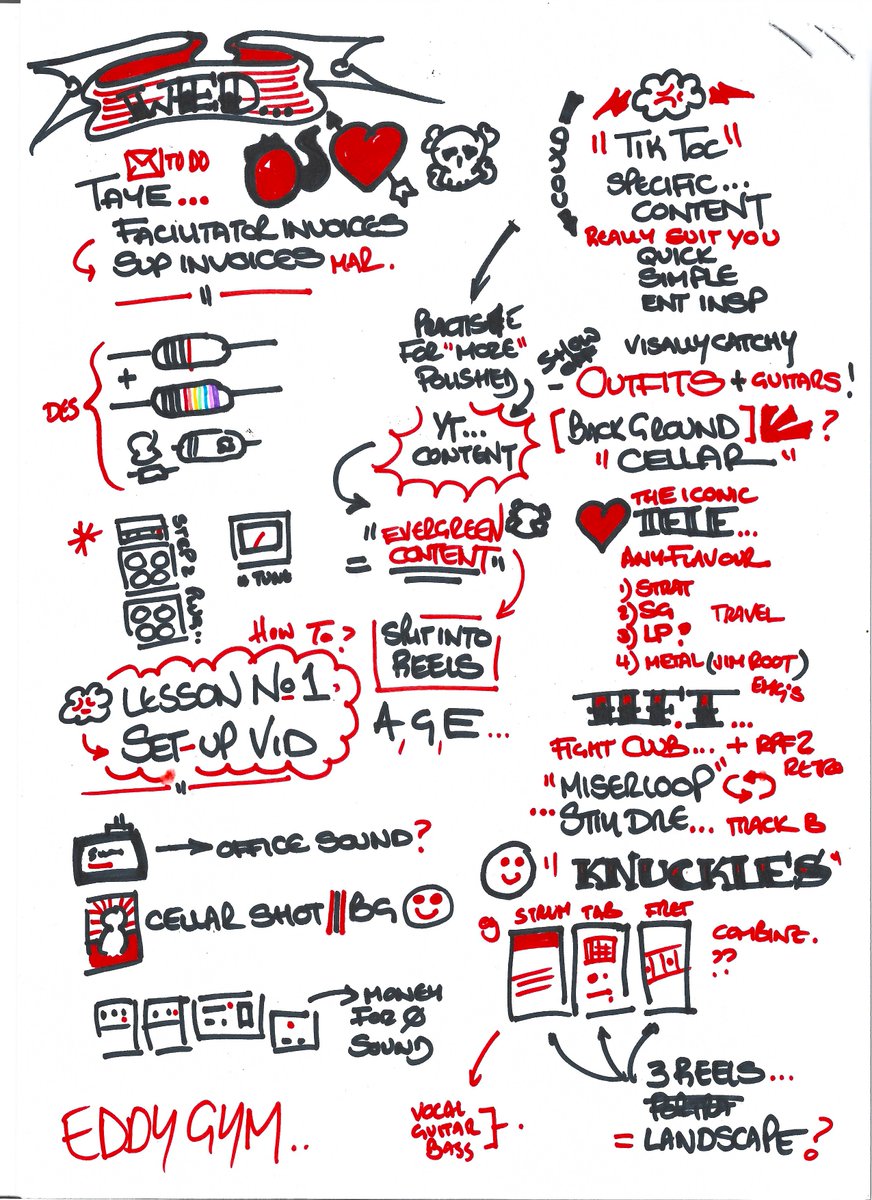 WED...
TO DO
TAYE...
FACILITATOR INVOICES
SUP INVOICES MAR.
"
DES
+
STEP 2
TUNE
HOW TO?
LESSON No 1
SET-UP VID
"
OFFICE SOUND?
CELLAR SHOT BG
MONEY
FOR Ø
SOUND
EDDY GYM..
PRACTISE
FOR "MORE"
POLISHED
YT...
CONTENT
= "EVERGREEN
CONTENT"
SPLIT INTO
REELS
A, G, E...
COULD
"TIK TOC"
SPECIFIC...
CONTENT
REALLY SUIT YOU
QUICK
SIMPLE
ENT INSP
SHOW OFF
VISALLY CATCHY
- OUTFITS + GUITARS!
[BACKGROUND] ?
"CELLAR"
THE ICONIC
ANY-FLAVOUR
1) STRAT
2) SG TRAVEL
3) LP?
4) METAL (JIM ROOT)
EMG'S
FIGHT CLUB... + RFF2
RETRO
"MISERLOOP"
... STIM DRE... TRACK B
"KNUCKLES"
eg STRUM TAB FRET
COMBINE.
??
3 REELS...
= LANDSCAPE?
VOCAL
GUITAR
BASS